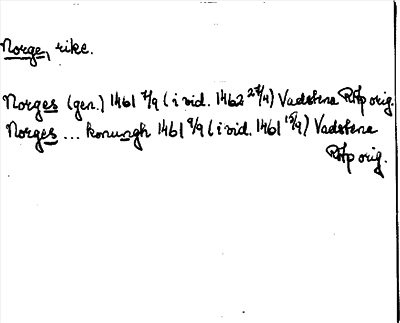 Norge, rike.
Norges (gen.) 1461 7/9 (i vid. 1462 27/4) Vadstena RAp orig.
Norges ... konungh 1461 9/9 (i vid. 1461 15/9) Vadstena
RAp orig.